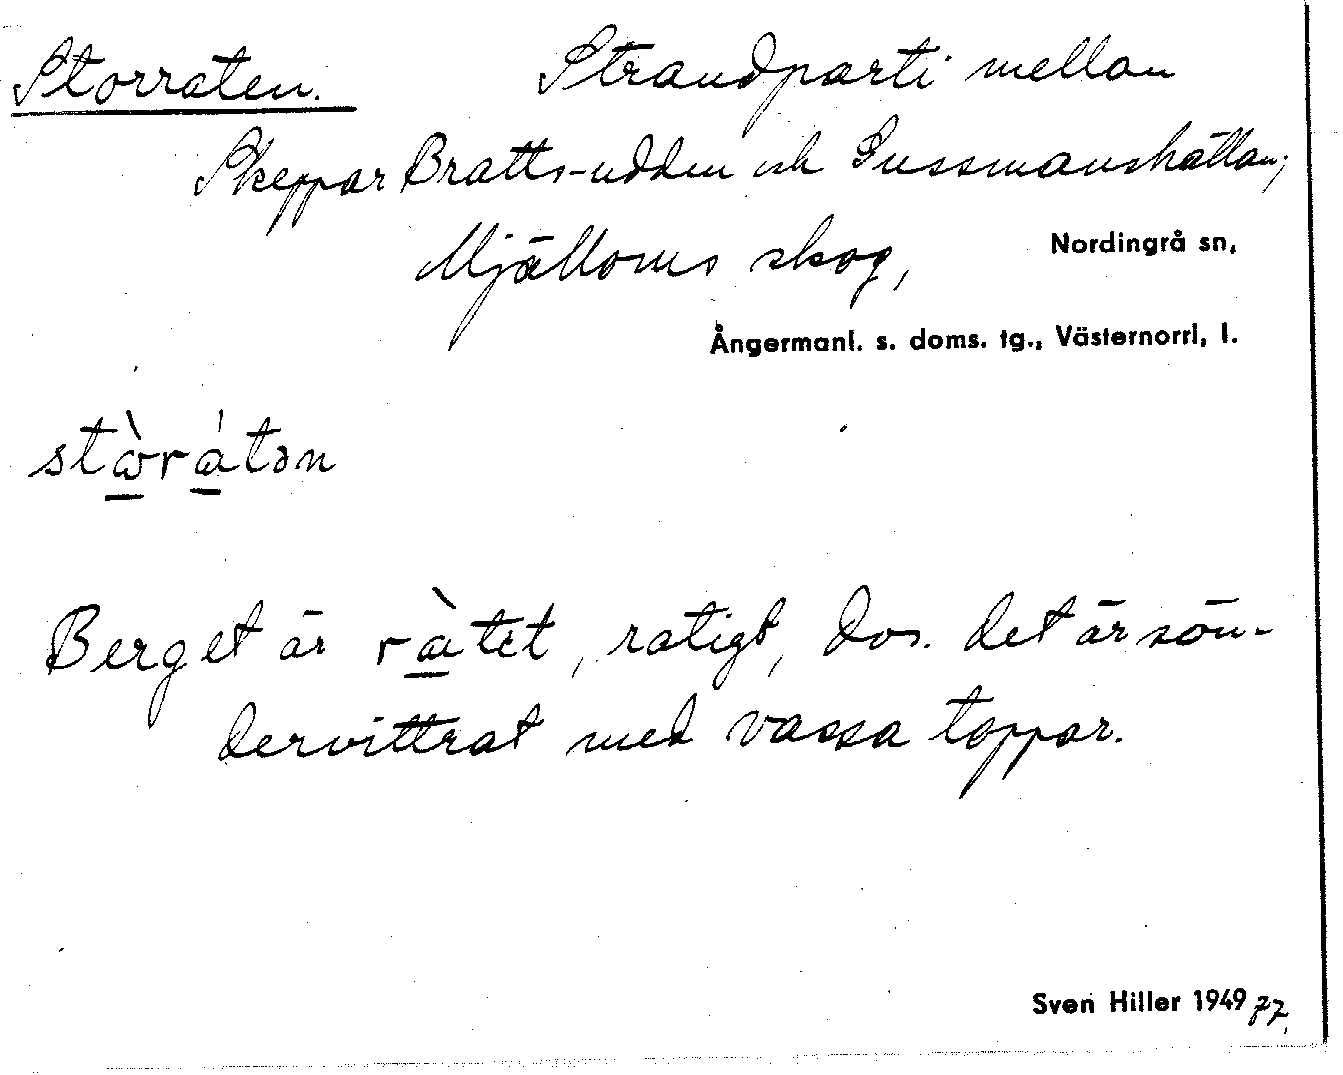 Storraten. Strandparti mellan
Skeppar Bratts-udden och Gussmanshällan;
Mjälloms skog, Nordingrå sn,
Ångermanl. s. doms. tg., Västernorrl, l.
stòráten
Berget är ràtet, ratigt, dvs. det är sön-
dervittrat med vassa toppar.
Sven Hiller 1949 77.